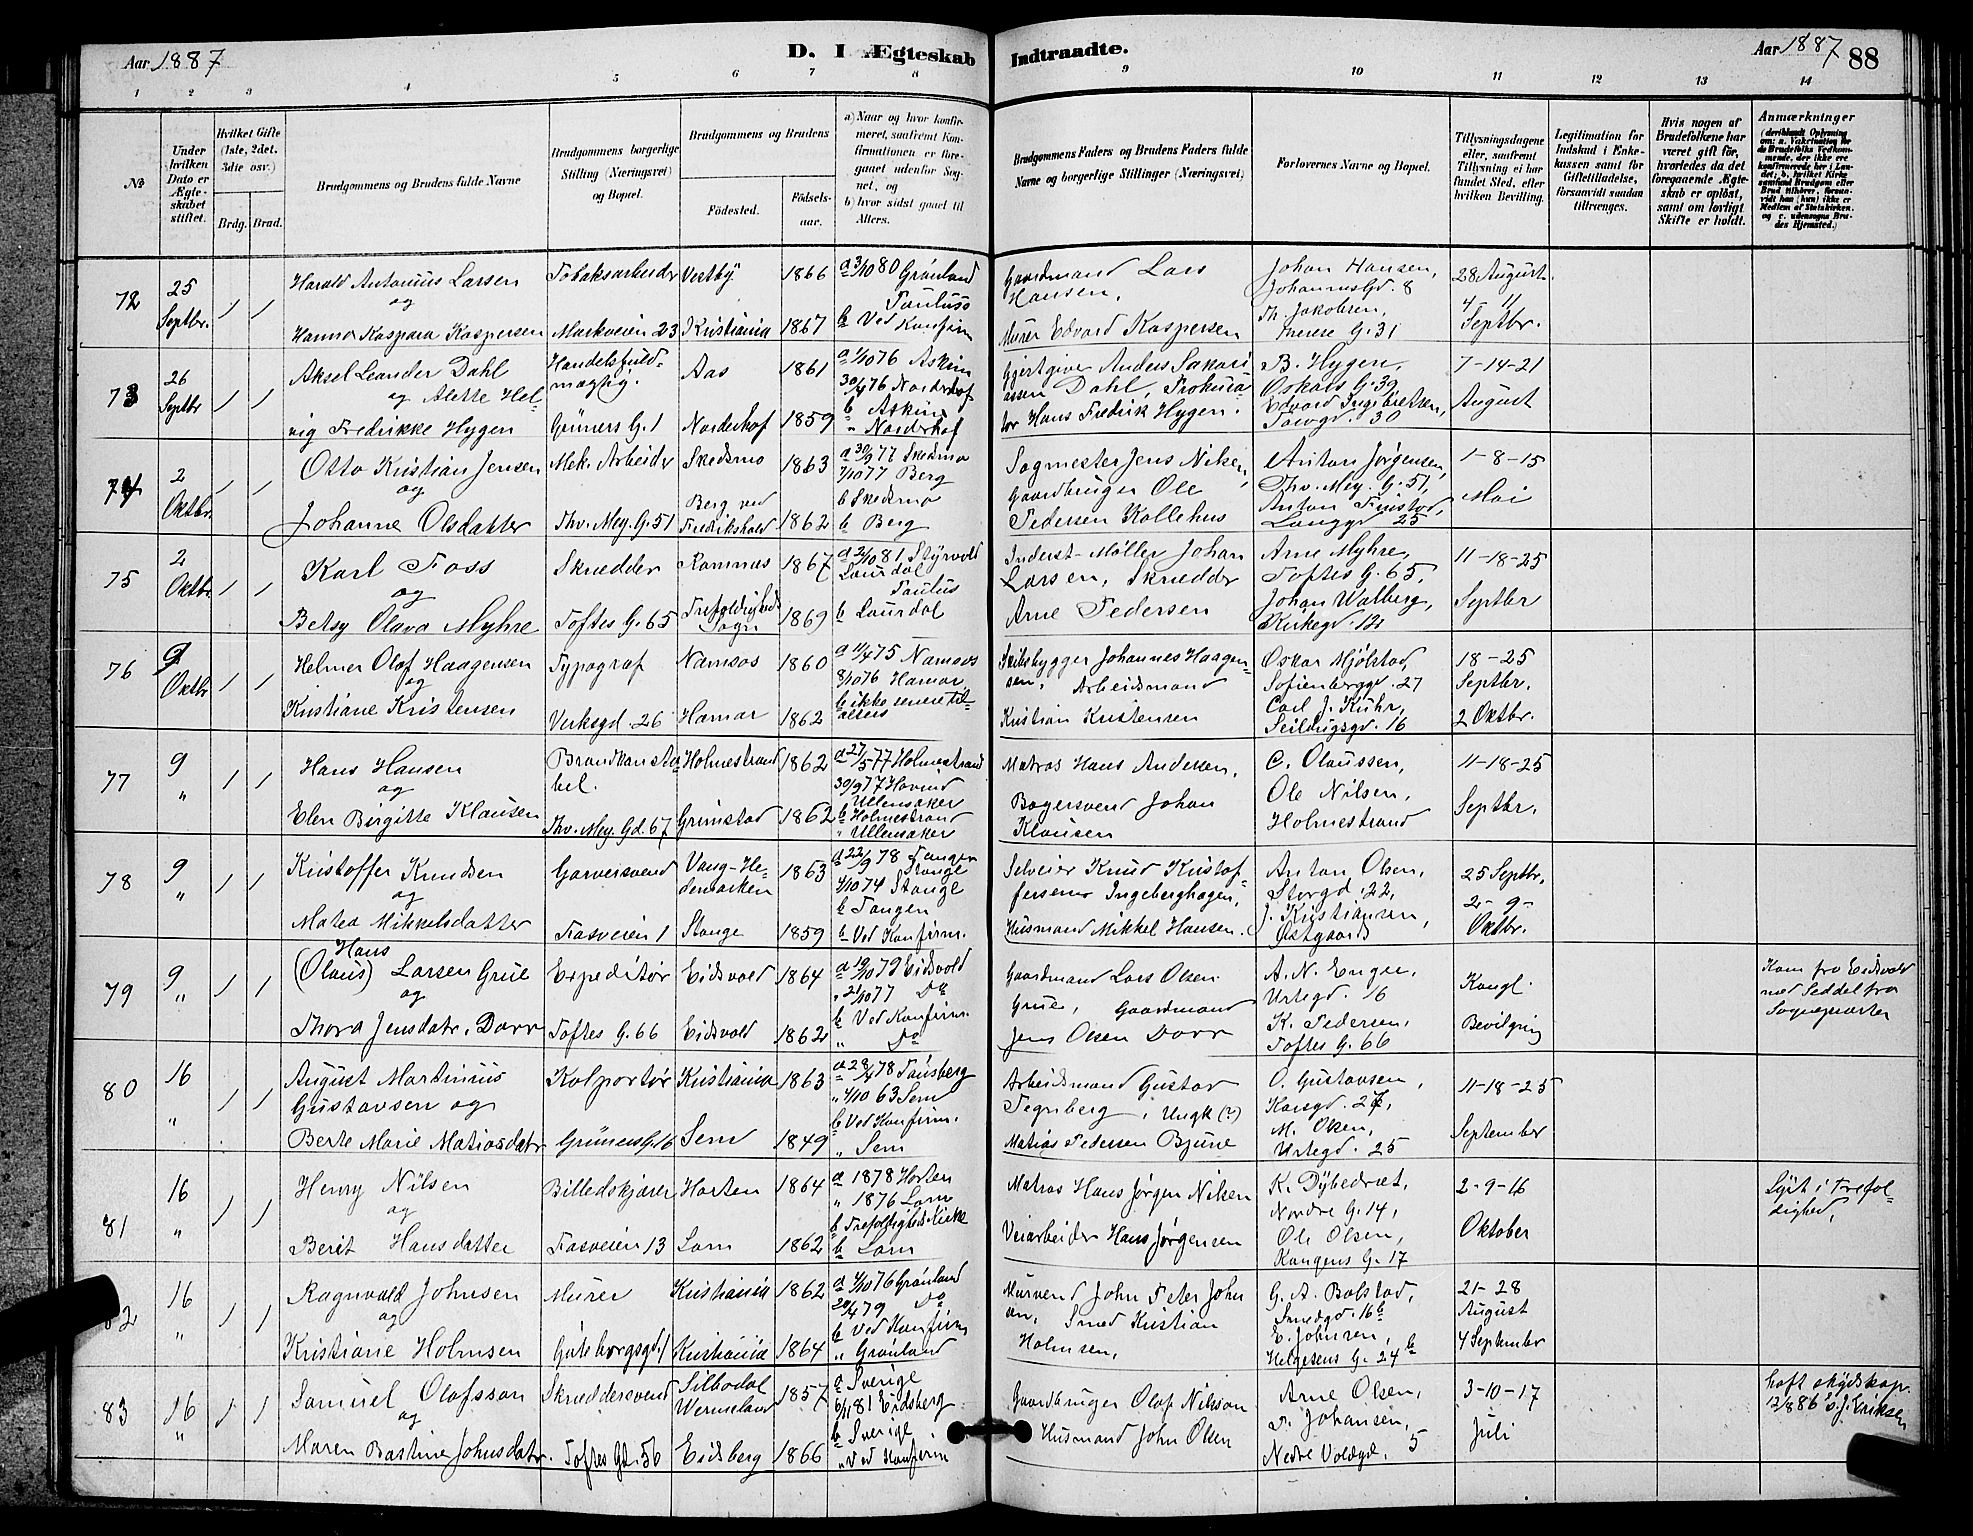 Aar 1887
D. I Ægteskab Indtraadte.
Aar 1887 88
1 2 3 4 5 6 7 8 9 10 11 12 13 14
№
Under hvilken Dato er Ægteskabet stiftet.
Hvilket Gifte (1ste, 2det. 3die osv.)
Brdg. Brud.
Brudgommens og Brudens fulde Navne
Brudgommens borgerlige Stilling (Næringsvei) og Bopæl.
Brudgommens og Brudens
Fødested.
Fødselsaar.
a) Naar og hvor konfirmeret, saafremt Konfirmationen er foregaaet udenfor Sognet, og
b) hvor sidst gaaet til Alters.
Brudgommens Faders og Brudens Faders fulde Navne og borgerlige Stillinger (Næringsvei)
Forlovernes Navne og Bopæl.
Tillysningsdagene eller, saafremt Tillysning ei har fundet Sted, efter hvilken Bevilling.
Legitimation for Indskud i Enkekassen samt for Giftetilladelse, forsaavidt saadan tiltrænges.
Hvis nogen af Brudefolkene har været gift før, hvorledes da det foregaaende Ægteskab er opløst, samt om lovligt Skifte er holdt.
Anmærkninger
72
25 Septbr.
1 1
Harald Antonius Larsen
og
Hanna Kaspara Kaspersen
Tobaksarbeider
Markveien 23
Vestby 1866
Kristiania 1867
a 3/10 80 Grønland
Paulus
b Ved Konfirm
Gaardmand Lars
Hansen,
Murer Edvard Kaspersen
Johan Hansen,
Johannesgd. 8
Th. Jakobsen,
G. 31
28 August
4 - 11
Septbr.
73
26 Septbr
1 1
Aksel Leander Dahl
og Alette Hel-
vig Fredrikke Hygen
Handelsfuld-
mægtig.
Grüners G. 1
Aas 1861
Norderhof 1859
a 1/10 76 Askim
30/4 76 Norderhof
b Askim
" Norderhof
Gjertgiver Anders Sakari
assen Dahl, Prokura
tor Hans Fredrik Hygen.
B. Hygen,
Oskars G. 39
Edvard Ingebretsen,
30
7-14-21
August
74
2 Oktbr.
1 1
Otto Kristian Jensen
og
Johanne Olsdatter
Mek. Arbeider
Thv. Mey. G. 51
Skedsmo 1863
Berg ved
Fredrikshald 1862
a 30/9 77 Skedsmo
7/10 77 Berg
b Skedsmo
b Berg
Sagmester Jens Nilsen,
Gaardbruger Ole
Pedersen Kollehus
Anton Jørgensen,
Thv. Mey. G. 51,
Anton
Langgd 25
1-8-15
Mai
75
2 Oktbr.
1 1
Karl Foss
og
Betsy Olava Myhre
Skrædder
Toftes G. 65
Ramnæs 1867
Trefoldigheds
Sogn 1869
a 2/10 81 Styrvold
Laurdal
Paulus
b Laurdal
Inderst-Møller Johan
Larsen, Skrædder
Arne Pedersen
Arne Myhre,
Toftes G. 65,
Johan Walberg,
Kirkegd. 12
11-18-25
Septbr
76
9 Oktbr
1 1
Helmer Olaf Haagensen
og
Kristiane Kristensen
Typograf
Verksgd. 26
Namsos 1860
Hamar 1862
a 11/4 75 Namsos
8/10 76 Hamar
b ikke senere til-
alters
Skibsbygger Johannes Haagen-
sen, Arbeidsmand
Kristian Kristensen
Oskar Mjølstad,
Sofienberggd. 27
Carl J. Kühr,
Seildugsgd. 16
18-25
Septbr.
2 Oktbr.
77
9 "
1 1
Hans Hansen
og
Elen Birgitte Klausen
Brandkonsta-
bel.
Thv. Mey. Gd. 67
Holmestrand 1862
Grimstad 1862
a 27/5 77 Holmestrand
30/9 77 Hovind
Ullensaker
b Holmestrand
" Ullensaker
Matros Hans Andersen,
Bagersvend Johan
Klausen
C. Olaussen,
Ole Nilsen,
Holmestrand
11-18-25
Septbr.
78
9 "
1 1
Kristoffer Knudsen
og
Matea Mikkelsdatter
Garversvend
Fasveien 1
Vang-He-
demarken 1863
Stange 1859
a 22/9 78 Tangen
Stange
4/10 74 Stange
b Tangen
b Ved Konfirm.
Selveier Knud Kristof-
fersens Ingeberghagen,
Husmand Mikkel Hansen.
Anton Olsen,
Storgd. 22,
J. Kristiansen,
Østgaard
25 Septbr.
2-9-
Oktbr.
79
9 "
1 1
Hans
(Olaus) Larsen Grue
og
Thora Jensdatr. Dorr
Expeditør
Toftes G. 66
Eidsvold 1864
Eidsvold 1862
a 19/10 79 Eidsvold
" 21/10 77 Do
b Ved Konfirm.
" Do
Gaardmand Lars Olsen
Grue, Gaardmand
Jens Olsen Dorr
A. N. Engse,
Urtegd. 16
K. Pedersen,
Toftes G. 66
Kongl.
Bevilgning
Kom fra Eidsvold
med Seddel fra
Sognepræsten
80
16 "
1 1
August Martinius
Gustavsen og
Berte Marie Matiasdatr.
Kolportør
Grüners G. 16
Kristiania 1863
Sem 1849
a 28/4 78 Tønsberg
" 4/10 63 Sem
b Ved Konfirm.
" Sem
Arbeidsmand Gustav
Tegnberg, Ungk (?)
Matias Pedersen Bjune
O. Gustavsen,
Korsgd. 27,
M. Olsen,
Urtegd. 25
11-18-25
September
81
16 "
1 1
Henry Nilsen
og
Berit Hansdatter
Billedskjærer
Fasveien 13
Horten 1864
Lom 1862
a 1878 Horten
" 1876 Lom
b Trefoldigheds Kirke
b Lom
Matros Hans Jørgen Nilsen
Veiarbeider Hans Jørgensen
K. Dybedræt,
Nordre G. 14,
Ole Olsen,
Kongens G. 17
2-9-16
Oktober
Lyst i Trefol-
dighed,
82
16 "
1 1
Ragnvald Johnsen
og
Kristiane Holmsen
Murer
Gøteborgsgd. 1
Kristiania 1862
Kristiania 1864
a 1/10 76 Grønland
20/4 79 Do
b Ved Konfirm
" Grønland
Mursvend John Peter John
sen, Smed Kristian
Holmsen,
G. A. Bolstad,
Smedgd. 16b
E. Johnsen,
Helgesens G. 24b
21-28
August
4 September
83
16 "
1 1
Samuel Olafsson
og
Maren Bastine Johnsdatr.
Skræddersvend
Toftes Gd. 56
Silbodal
Wermeland 1857
Eidsberg 1866
a Sverige
6/11 81 Eidsberg
b Sverige
" Ved Konfirm
Gaardbruger Olof Nilsson
Husmand John Olsen
Arne Olsen,
P. Johansen,
Nedre Voldgd. 5
3-10-17
Juli
haft
12/8 86 J. Eriksen